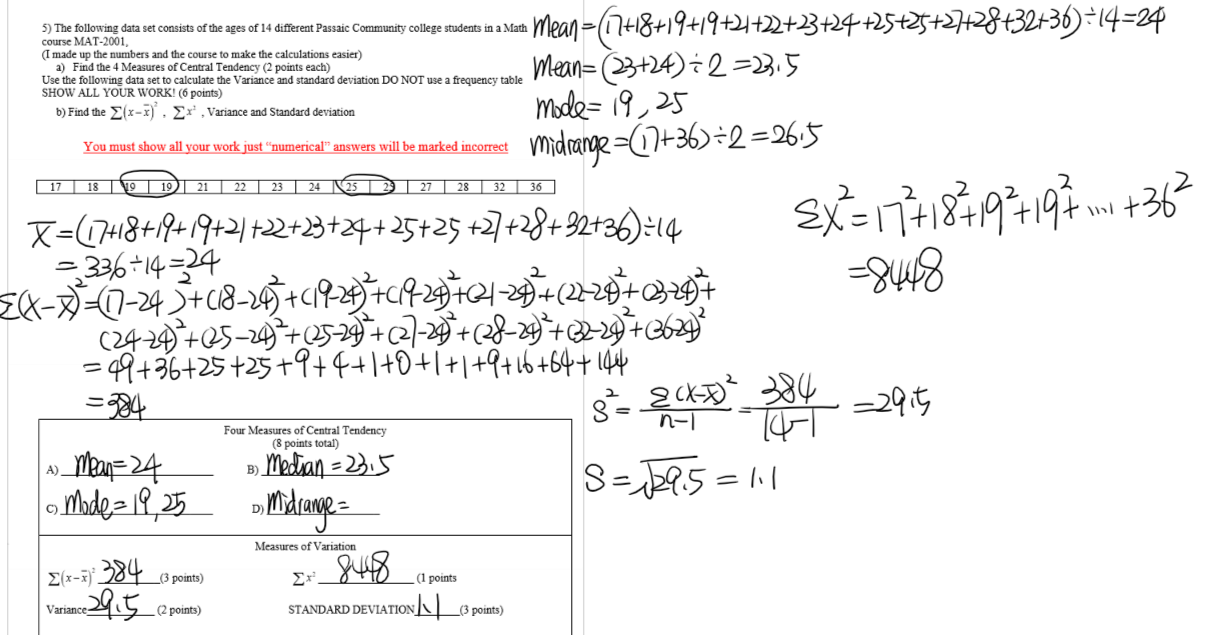 5) The following data set consists of the ages of 14 different Passaic Community college students in a Math
course MAT-2001,
(I made up the numbers and the course to make the calculations easier)
a) Find the 4 Measures of Central Tendency (2 points each)
Use the following data set to calculate the Variance and standard deviation DO NOT use a frequency table
SHOW ALL YOUR WORK! (6 points)
b) Find the Σ(x−x̄)², Σx², Variance and Standard deviation
You must show all your work just “numerical” answers will be marked incorrect
17 18 19 19 21 22 23 24 25 25 27 28 32 36
Mean=(17+18+19+19+21+22+23+24+25+25+27+28+32+36)÷14=24
Mean=(23+24)÷2=23.5
mode=19,25
midrange=(17+36)÷2=26.5
x̄=(17+18+19+19+21+22+23+24+25+25+27+28+32+36)÷14
=336÷14=24
Σ(x-x̄)²=(17-24)²+(18-24)²+(19-24)²+(19-24)²+(21-24)²+(22-24)²+(23-24)²+
(24-24)²+(25-24)²+(25-24)²+(27-24)²+(28-24)²+(32-24)²+(36-24)²
=49+36+25+25+9+4+1+0+1+1+9+16+64+144
=384
Σx²=17²+18²+19²+19²+....+36²
=8448
S²=Σ(x-x̄)²/n-1=384/14-1=29.5
S=√29.5=1.1
Four Measures of Central Tendency
(8 points total)
A) Mean=24 B) Median=23.5
C) Mode=19,25 D) Midrange=
Measures of Variation
Σ(x−x̄)² 384 (3 points) Σx² 8448 (1 points
Variance 29.5 (2 points) STANDARD DEVIATION 1.1 (3 points)